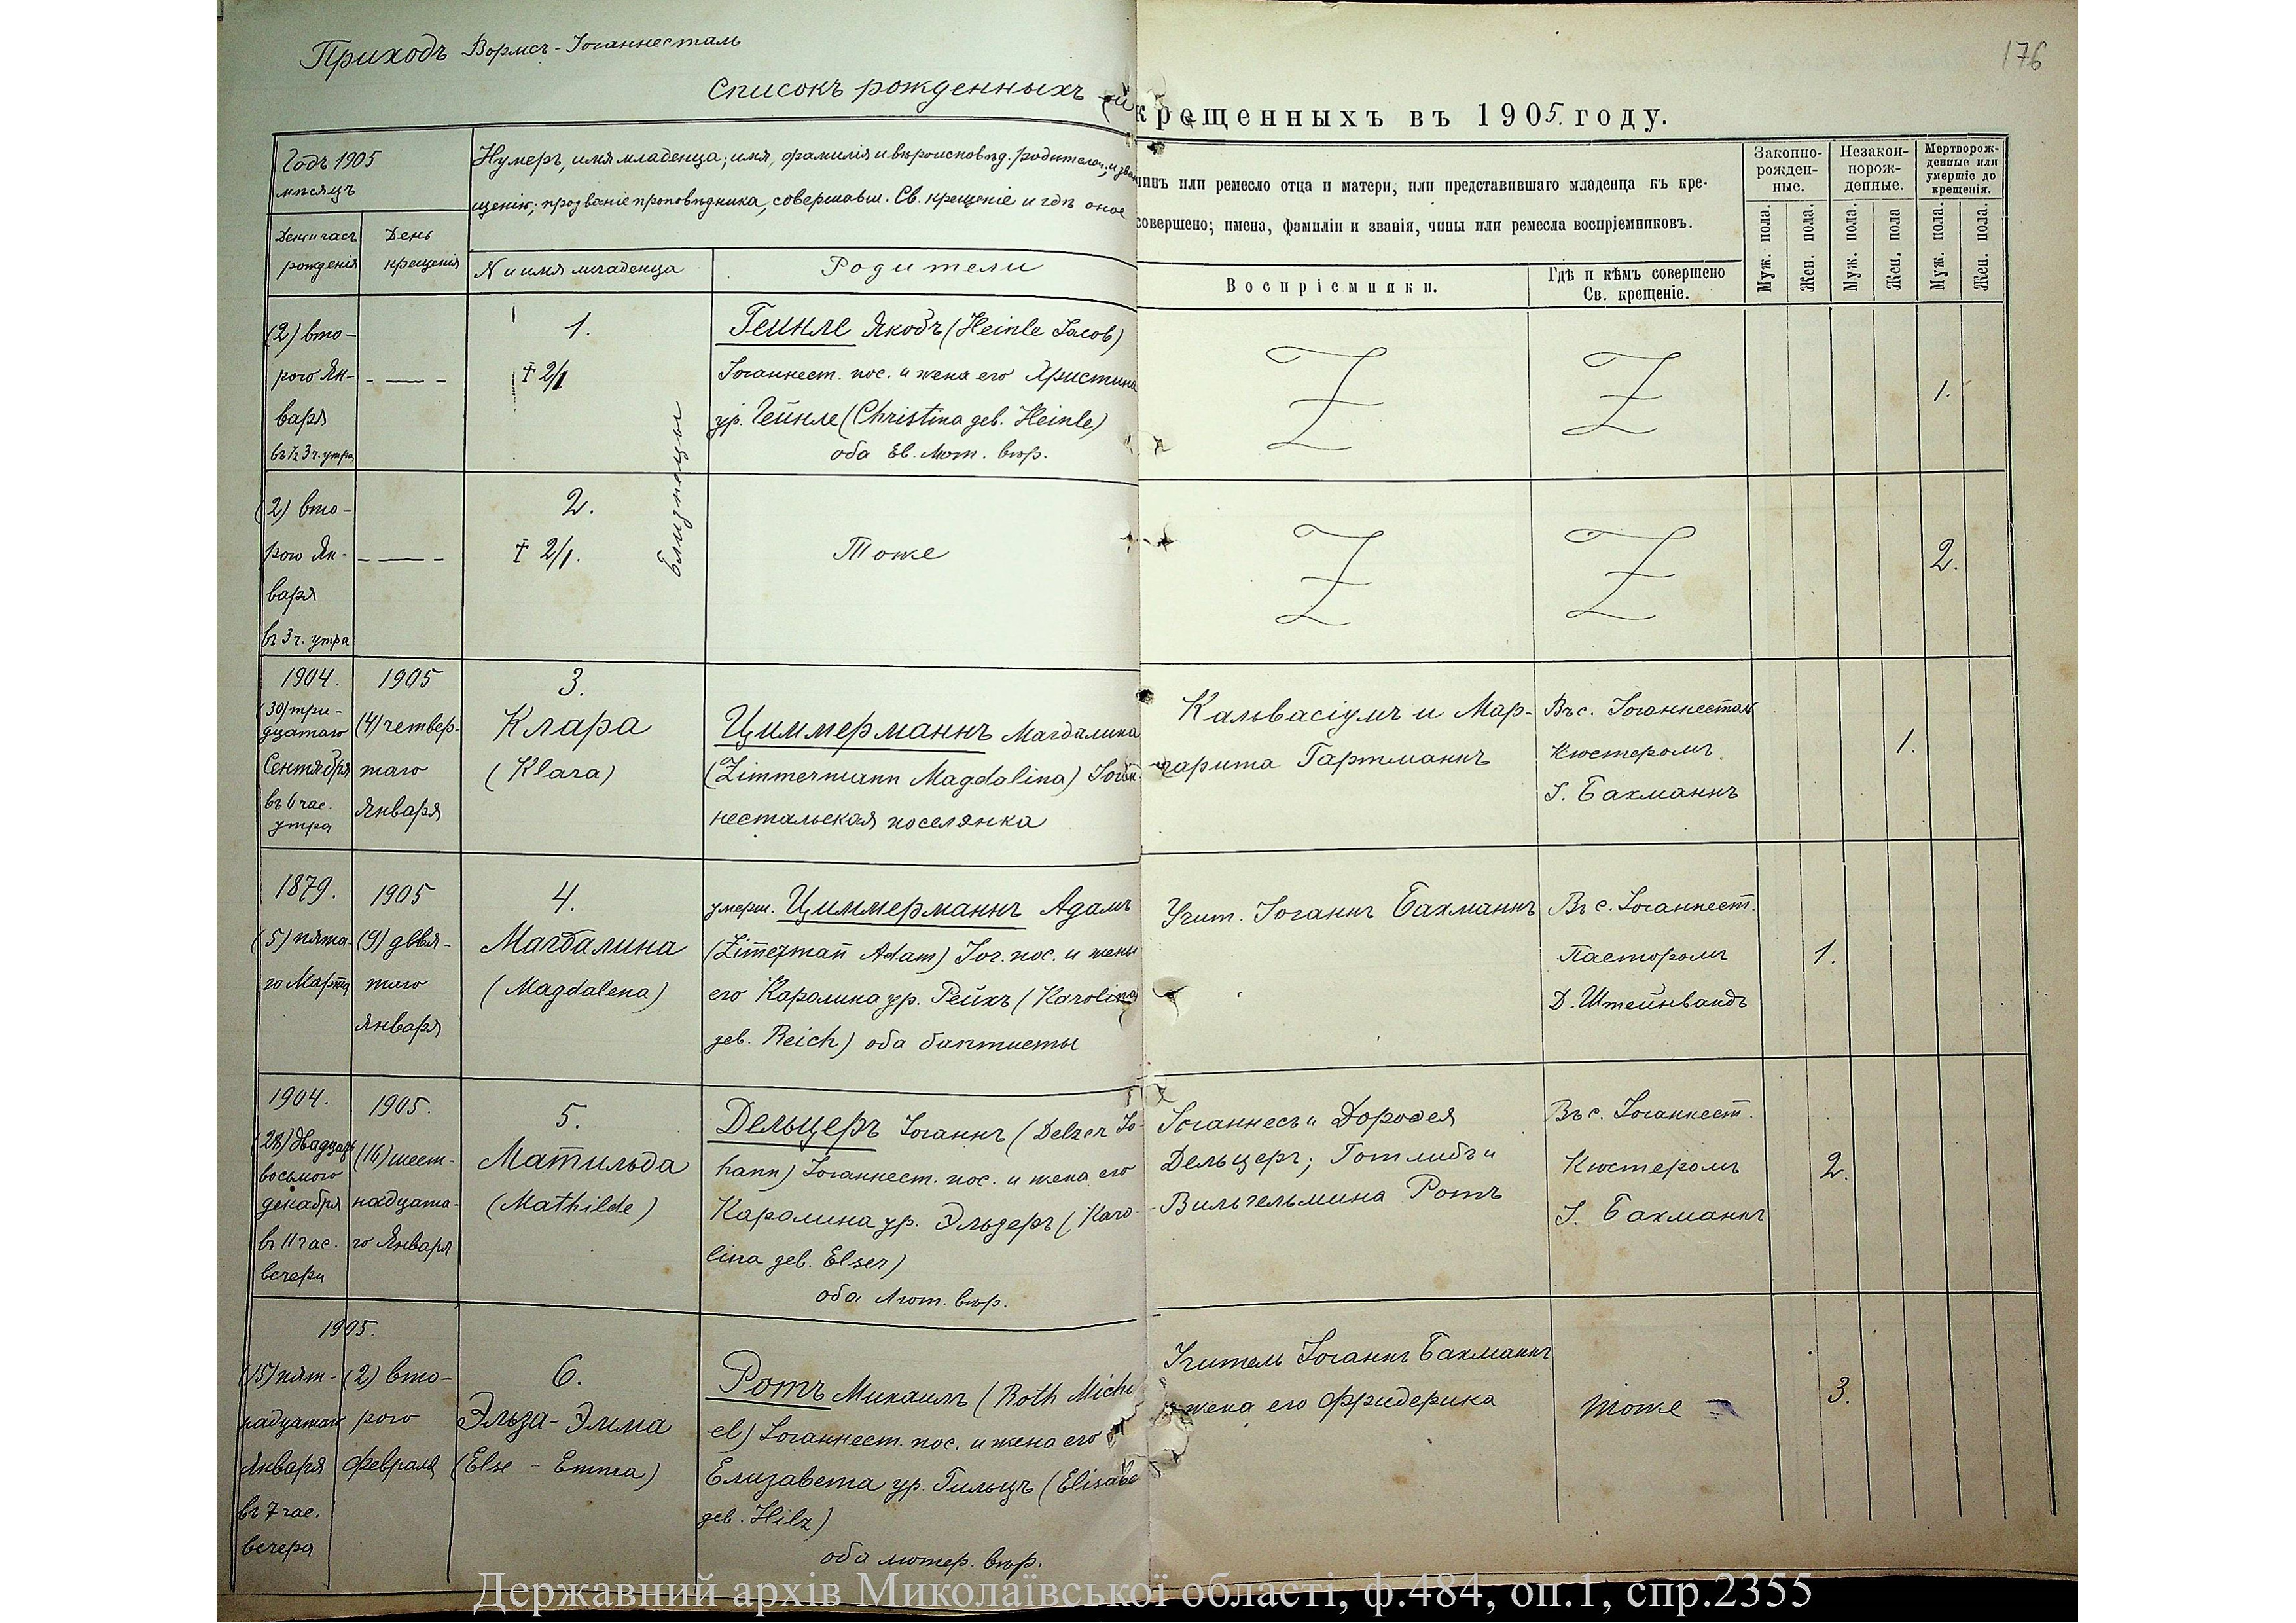 176
Приходъ Вормсъ-Іоганнесталь
Списокъ рожденныхъ и крещенныхъ въ 1905. году.
Годъ 1905
мѣсяцъ
Нумеръ, имя младенца; имя, фамилія и вѣроисповѣд. родителей, и зва
чинъ или ремесло отца и матери, или представившаго младенца къ кре-
щенію; прозваніе проповѣдника, совершавш. Св. крещеніе и гдѣ оное
совершено; имена, фамиліи и званія, чины или ремесла воспріемниковъ.
Законно-
рожден-
ные.
Незакон-
норож-
денные.
Мертворож-
денные или
умершіе до
крещенія.
День и часъ
рожденія
День
крещенія
N и имя младенца
Родители
Воспріемники.
Гдѣ и кѣмъ совершено
Св. крещеніе.
Муж. пола.
Жен. пола.
Муж. пола.
Жен. пола
Муж. пола.
Жен. пола.
(2) вто-
рого Ян-
варя
въ ½ 3 ч. утра
- — -
1.
† 2/1
близнецы
Гейнле Якобъ (Heinle Jacob)
Іоганнест. пос. и жена его Христина
ур. Гейнле (Christina geb. Heinle)
оба Ев. Лют. вѣр.
1.
(2) вто-
рого Ян-
варя
въ 3 ч. утра
- — -
2.
† 2/1.
Тоже
2.
1904.
(30) три-
дцатаго
Сентября
въ 6 час.
утра
1905
(4) четвер-
таго
Января
3.
Клара
(Klara)
Циммерманнъ Магдалина
(Zimmermann Magdalina) Іоган-
нестальская поселянка
Кальвасіумъ и Мар-
гарита Гартманнъ
Въ с. Іоганнесталь
Кюстеромъ
І. Бахманнъ
1.
1879.
(5) пята-
го Марта
1905
(9) девя-
таго
Января
4.
Магдалина
(Magdalena)
умерш. Циммерманнъ Адамъ
(Zimerman Adam) Іог. пос. и жены
его Каролина ур. Рейхъ (Karolina
geb. Reich) оба баптисты
Учит. Іоганнъ Бахманнъ
Въ с. Іоганнест.
Пасторомъ
Д. Штейнвандъ
1.
1904.
(28) двадцать
восьмого
декабря
въ 11 час.
вечера
1905.
(16) шест-
надцата-
го Января
5.
Матильда
(Mathilde)
Дельцеръ Іоганнъ (Delzer Jo-
hann) Іоганнест. пос. и жена его
Каролина ур. Эльзеръ (Karo-
lina geb. Elser)
оба Лют. вѣр.
Іоганнесъ и Доровея
Дельцеръ; Готлибъ и
Вильгельмина Ротъ
Въ с. Іоганнест.
Кюстеромъ
І. Бахманнъ
2.
1905.
(15) пят-
надцатаго
Января
въ 7 час.
вечера
(2) вто-
рого
Февраля
6.
Эльза-Эмма
(Else - Emma)
Ротъ Михаилъ (Roth Micha
el) Іоганнест. пос. и жена его
Елизавета ур. Гильцъ (Elisabe
geb. Hilz)
оба лютер. вѣр.
Учитель Іоганнъ Бахманнъ
жена его Фридерика
тоже
3.
Державний архів Миколаївської області, ф.484, оп.1, спр.2355